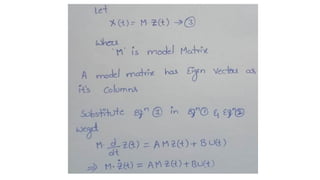 Let
X(t) = M Z(t) → ③
Where
'M' is model Matrix
A model matrix has Eigen Vectors as
it's Columns
Substitute Eqⁿ ③ in Eqⁿ ① & Eqⁿ ②
we get
M d/dt Z(t) = A M Z(t) + B U(t)
⇒ M · Ż(t) = A M Z(t) + B U(t)